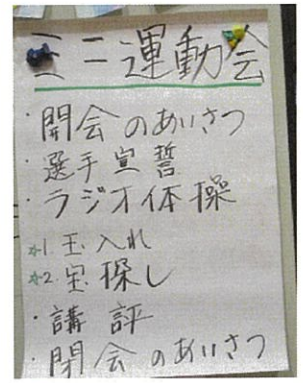 ミニ運動会
・開会のあいさつ
・選手宣誓
・ラジオ体操
☆1.玉入れ
☆2.宝探し
・講評
・閉会のあいさつ